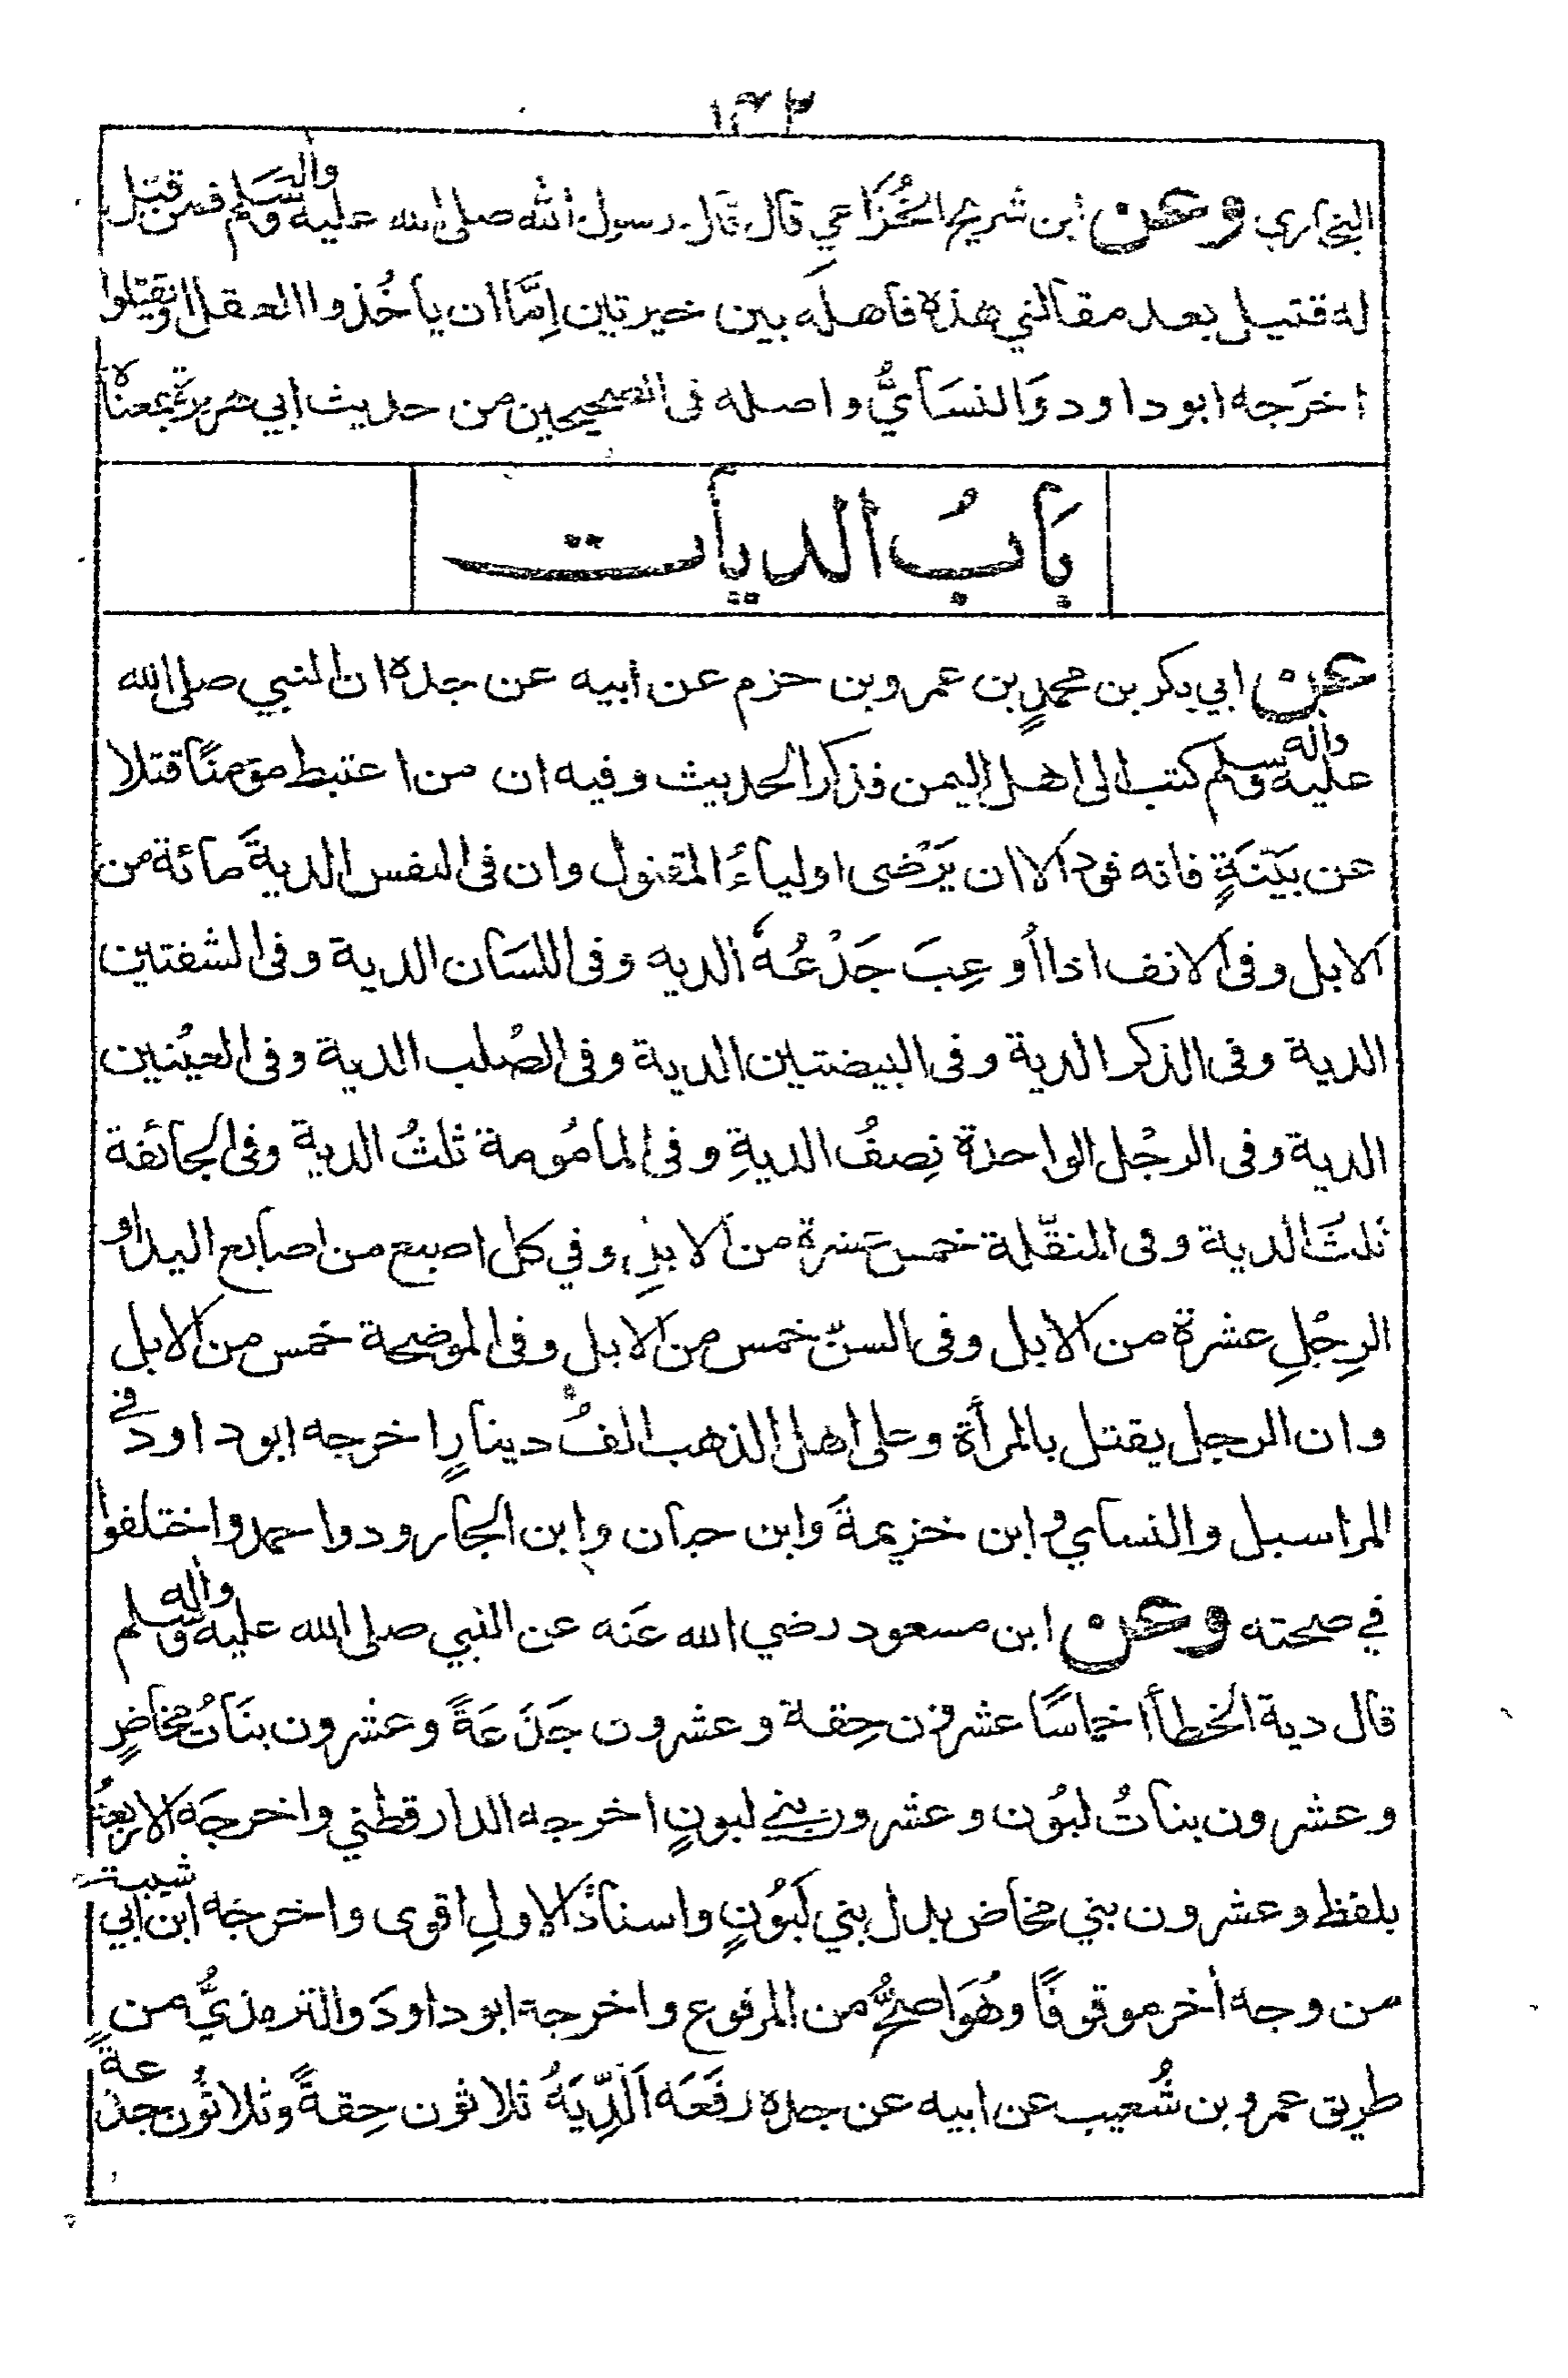 البخاري وعن ابن شريح الخُزَاعي قال قال رسول الله صلى الله عليه واله وسَلم فمن قتِل
له قتيل بعد مقالتي هذه فاهلَه بين خيرتين اِمَّا ان ياخُذوا العقل او يقتلوا
اخرَجه ابوداود وَالنسَايُّ واصله فى الصحيحين من حديث ابي هريرة بمعناه
بَابُ الديات
عن ابي بكر بن محمدٍ بن عمرو بن حزم عن ابيه عن جده ان النبي صلى الله
عليه واله وسلم كتب الى اهل اليمن فذكر الحديث وفيه ان من اعتبط مؤمنًا قتلا
عن بَيّنَةٍ فانه قود الا ان يَرْضى اولياءُ المقتول وان فى النفس الديةَ مائة من
الابل وفى الانف اذا أُوعِبَ جَدْعُهُ الديه وفى اللسَان الدية وفى الشفتين
الدية وفى الذكر الدية وفى البيضتين الدية وفى الصُلب الدية وفى العيْنين
الدية وفى الرجْل الواحدة نِصفُ الديةِ وفى المأمُومة ثلثُ الدية وفى الجائفة
ثلثُ الدية وفى المنقّلة خمس عشرة من الابلِ وفي كل اصبع من اصابع اليد او
الرِجْلِ عشرة من الابل وفى السنّ خمس من الابل وفى الموضحة خمس من الابل
وان الرجل يقتل بالمرأة وعلى اهل الذهب الفُ دينارٍ اخرجه ابوداود في
المراسيل والنساي وابن خزيمةَ وابن حبان وابن الجارود واحمد واختلفوا
في صحته وعن ابن مسعود رضي الله عَنه عن النبي صلى الله عليه واله وسلم
قال دية الخطأ اخماسًا عشرون حِقة وعشرون جَذَعَةً وعشرون بنَاتُ مخاضٍ
وعشرون بناتُ لبُون وعشرون بني لبونٍ اخرجه الدارقطني واخرجَه الاربعةُ
بلفظ وعشرون بني مخاض بدل بني لَبُونٍ واسنادُ الاولِ اقوى واخرجَه ابن ابي شيبة
من وجه اٰخر موقوفًا وهُوَ اصحُّ من المرفوع واخرجه ابوداودَ والترمذيُّ من
طريق عمرو بن شُعيب عن ابيه عن جده رفَعَه اَلدِّيَةُ ثلاثون حِقةً وثلاثُون جذعةً